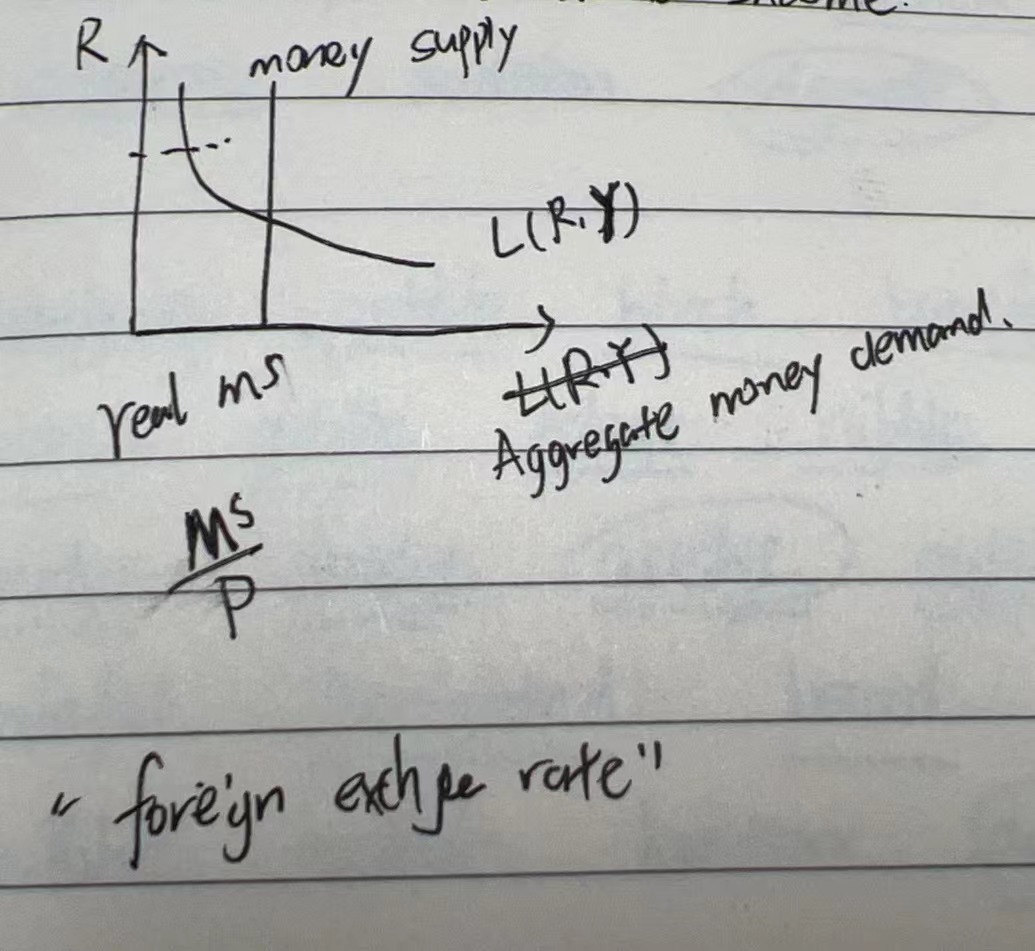 R money supply
L(R,Y)
L(R,Y)
real ms
Aggregate money demand.
M^s
P
"foreign rate"